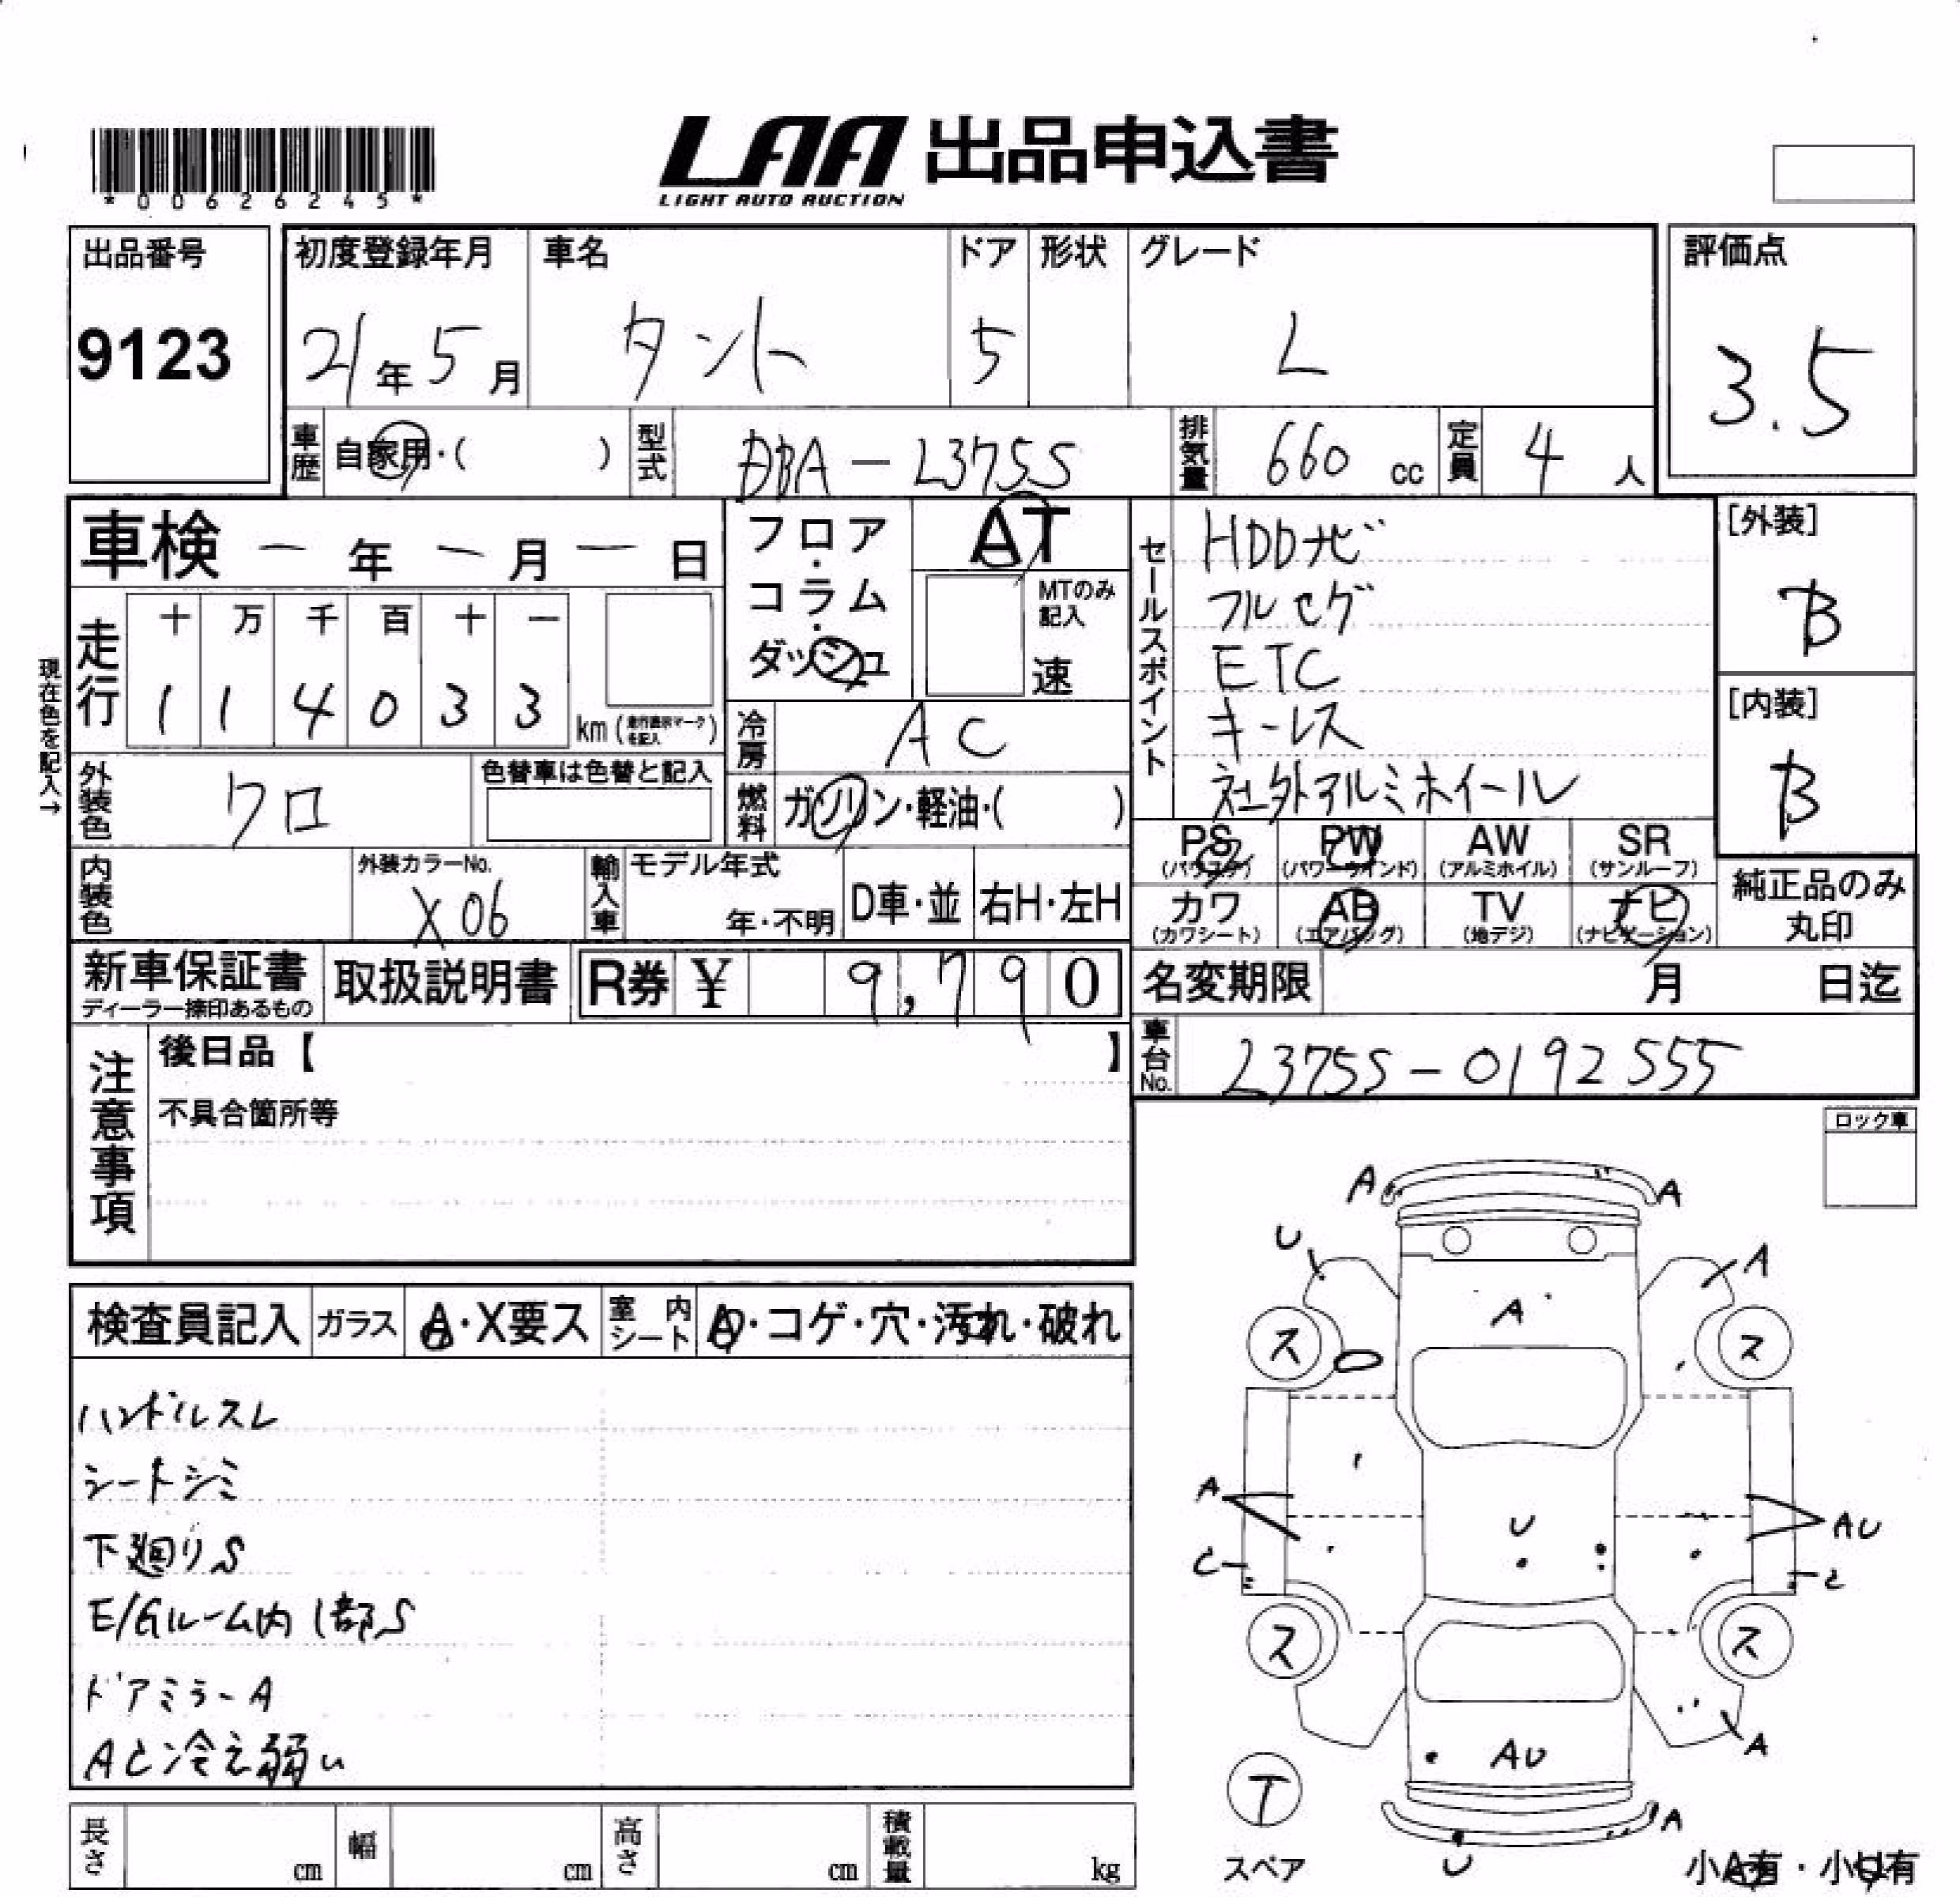 LAA 出品申込書
LIGHT AUTO AUCTION
*00626245*
出品番号
9123
初度登録年月
21年5月
車名
タント
ドア
5
形状
グレード
L
評価点
3.5
車歴
自家用・( )
型式
DBA-L375S
排気量
660 cc
定員
4 人
車検 ー 年 ー 月 ー 日
フロア・コラム・ダッシュ
AT
MTのみ記入
速
セールスポイント
HDDナビ
フルセグ
ETC
キーレス
社外アルミホイール
[外装]
B
[内装]
B
現在色を記入→
走行
十 万 千 百 十 一
1 1 4 0 3 3
km (走行表示マークを記入)
冷房
AC
外装色
クロ
色替車は色替と記入
燃料
ガソリン・軽油・( )
PS (パワステ)
PW (パワーウインド)
AW (アルミホイル)
SR (サンルーフ)
カワ (カワシート)
AB (エアバッグ)
TV (地デジ)
ナビ (ナビゲーション)
純正品のみ丸印
内装色
外装カラーNo.
X06
輸入車
モデル年式
年・不明
D車・並
右H・左H
新車保証書
ディーラー捺印あるもの
取扱説明書
R券 ¥ 9,790
名変期限 月 日迄
車台No.
L375S-0192555
注意事項
後日品【 】
不具合箇所等
ロック車
検査員記入
ガラス
A・X要ス
室内シート
A・コゲ・穴・汚れ・破れ
ハンドルスレ
シートシミ
下廻りS
E/Gルーム内1部S
ドアミラーA
AC冷え弱い
A
A
U
A
A
ス
ス
A
U
AU
C
C
ス
ス
A
AU
T
A
U
スペア
小A有・小U有
長さ cm
幅 cm
高さ cm
積載量 kg